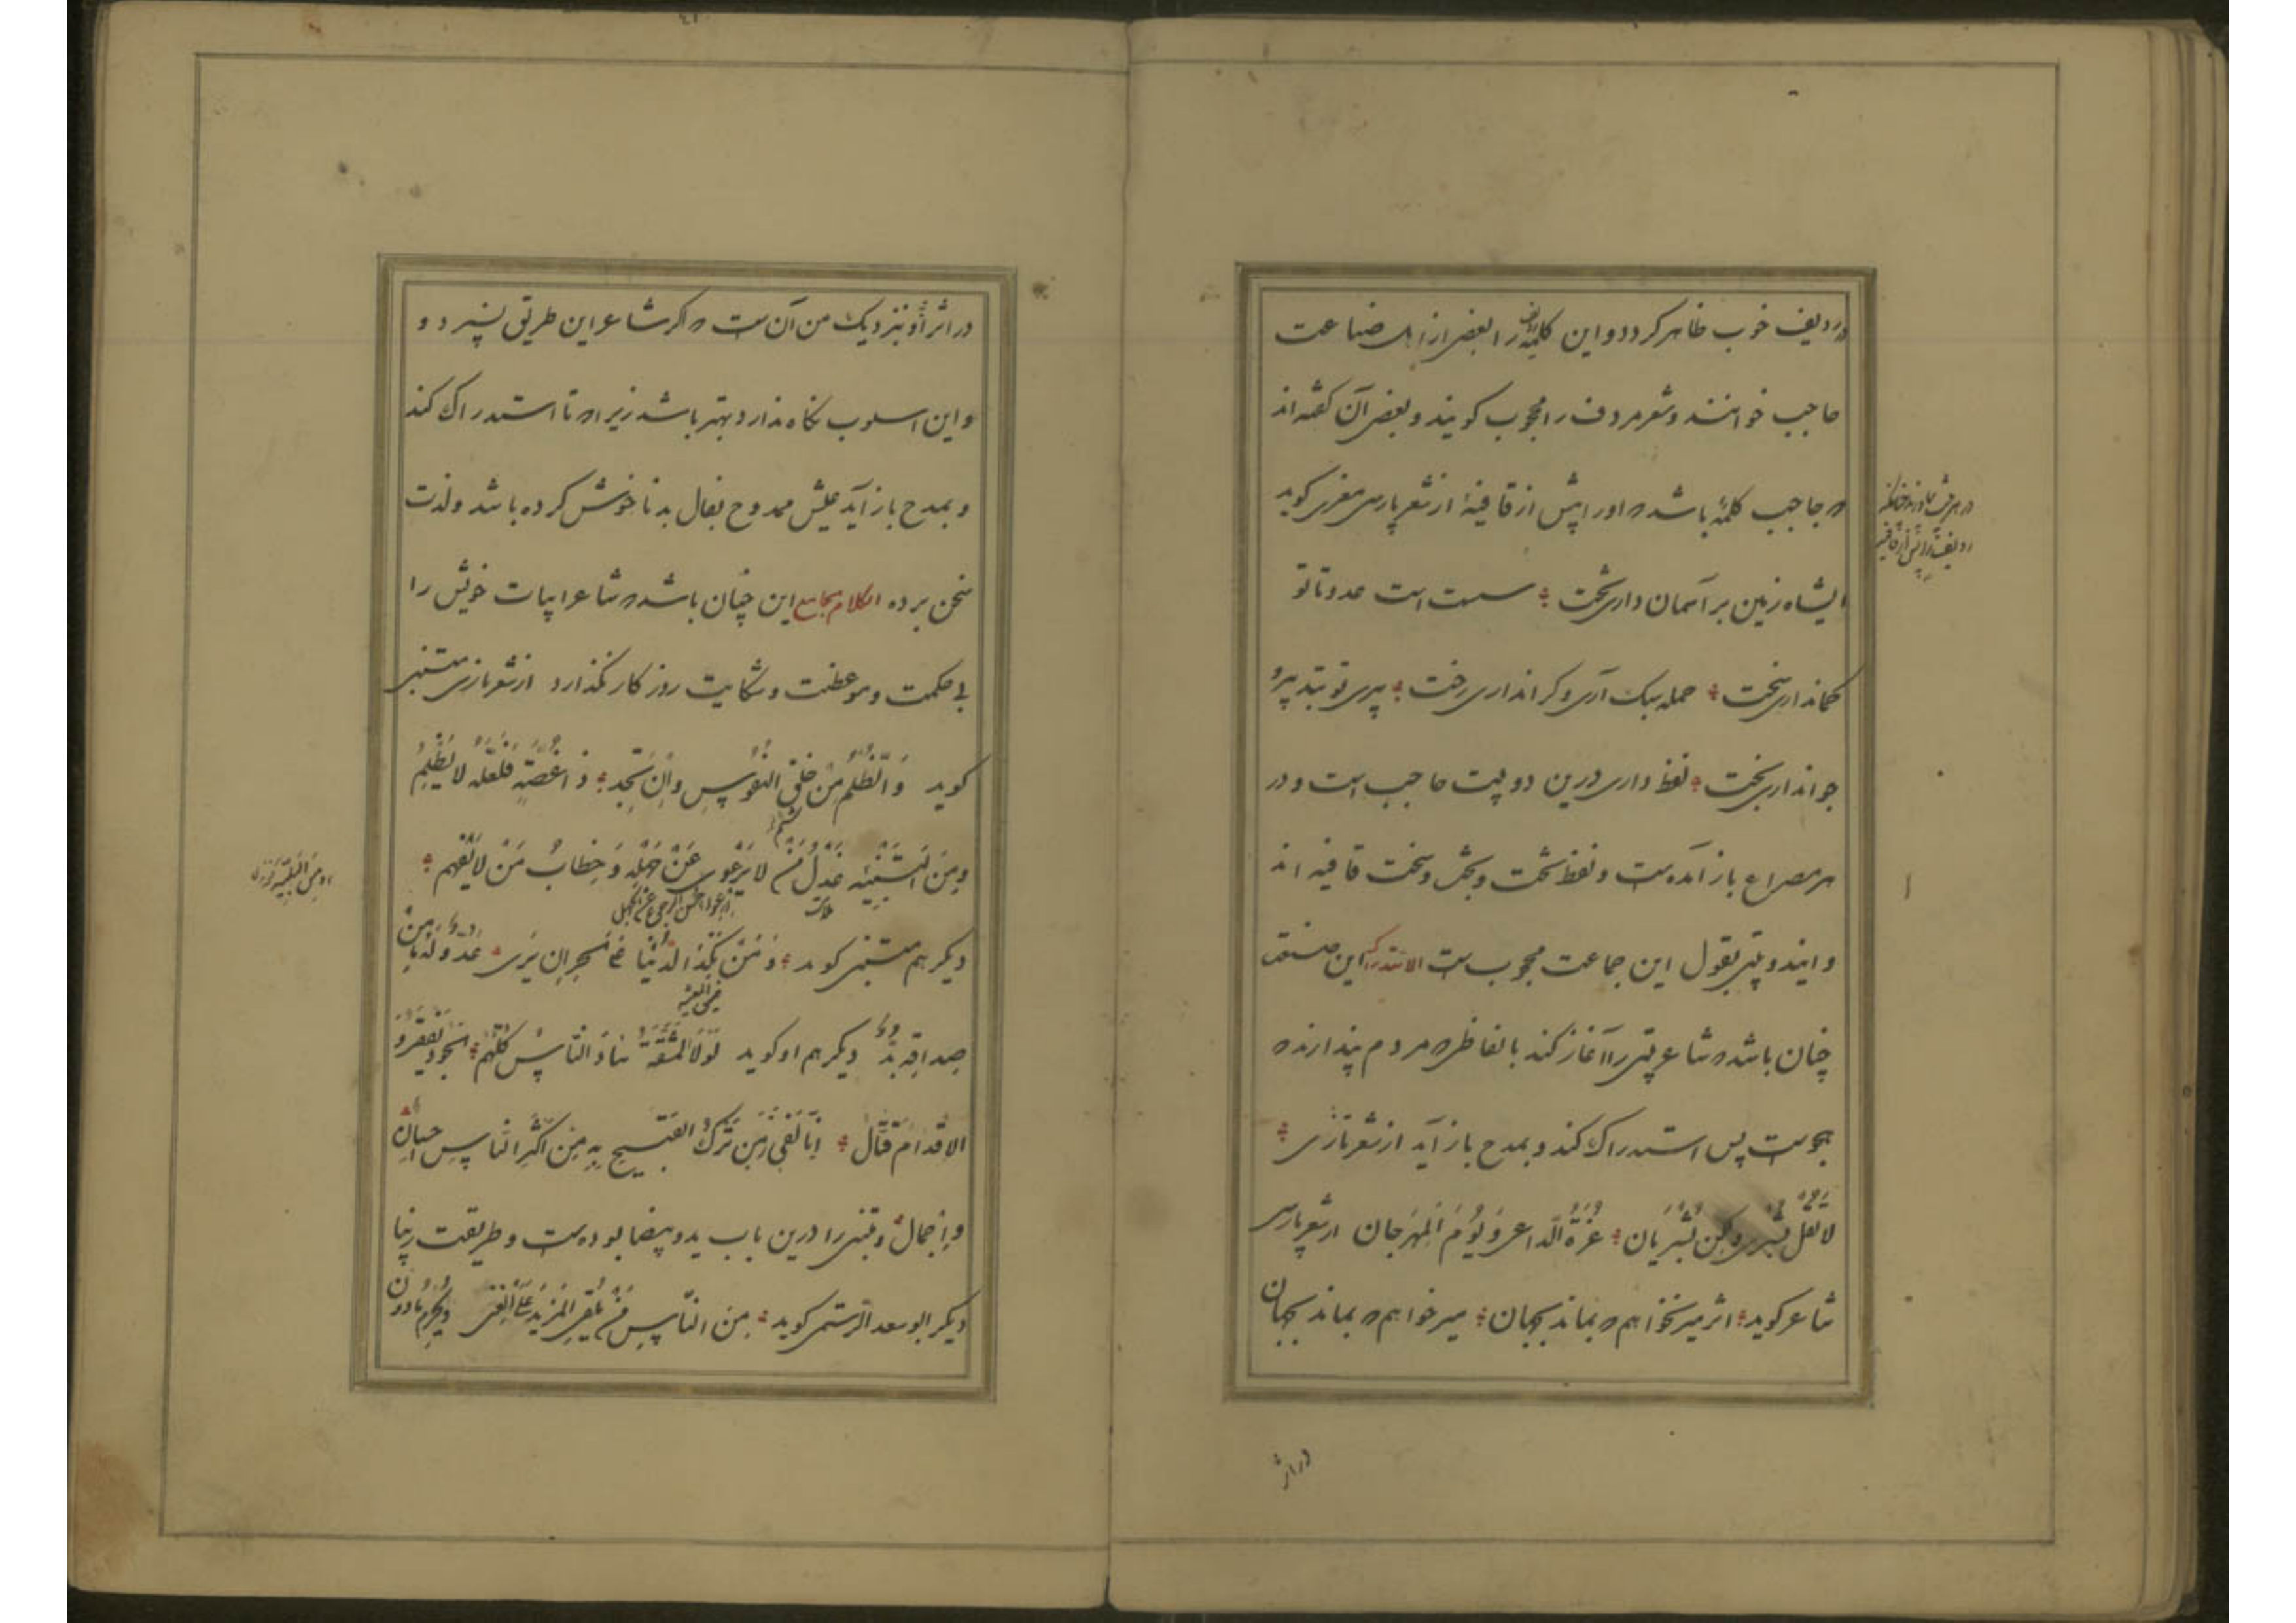 در ردیف خوب ظاهر کردد و این کلمه را بعضی از اهل صناعت
حاجب خوانند و شعر مردف را محجوب کویند و بعضی آن کفته اند
که حاجب کلمهٔ باشد که او را پیش از قافیه از شعر پارسی معزی کوید
ای شاه زمین بر آسمان داری تخت سست است عدو تا تو
کمان داری سخت حمله سبک آری و کران داری رخت پیری تو بتدبیر و
جوان داری بخت لفظ داری درین دو بیت حاجب است و در
هر مصراع باز آمدست و لفظ تخت و بخت و سخت قافیه اند
و این دو بیتی بقول این جماعت محجوب ست الاستدراک این صنعت
چنان باشد که شاعر بیتی را آغاز کند بالفاظی که مردم پندارند که
هجوست پس استدراک کند و بمدح باز آید از شعر تازی
لا تقل بشری ولکن بشریان غرة الداعی و یوم المهرجان از شعر پارسی
شاعر کوید اثر میر نخواهم که بماند بجهان میر خواهم که بماند بجهان
در اثر
در اثر او و بنزدیک من آن ست که اکر شاعر این طریق نسپرد و
و این اسلوب نکاه ندارد بهتر باشد زیرا که تا استدراک کند
و بمدح باز آید عیش ممدوح بفال بد ناخوش کرده باشد و لذت
سخن برده الکلام الجامع این چنان باشد که شاعر ابیات خویش را
بی حکمت و موعظت و شکایت روزکار نکذارد از شعر تازی متنبی
کوید وَالظُّلْمُ مِنْ خُلُقِ النُّفُوسِ وَاِنْ تَجِد ذا عِفَّةٍ فَلَعَلَّه لا یَظْلِمُ
وَمِنَ البَلِیَّةِ عَذْلُ مَنْ لا یَرْعَوِی عَنْ جَهْلِه وَ خِطابُ مَنْ لا یَفْهَم
دیکر هم متنبی کوید وَ مِنْ نَکَدِ الدُّنْیا عَلَی الحُرِّ اِنْ یَرَی عَدُوًّا لَه ما مِنْ
صداقته بدّ دیکر هم او کوید لَوْلَا المَشَقَّة سادَ النّاسُ کُلُّهُم الجود یفقر و
الاقدام قتّال اِنّا لَفِی زَمَنٍ تَرْکُ القَبِیحِ بِه مِنْ اَکْثَرِ النّاسِ احسانٌ
وَاِجْمالٌ و متنبی را درین باب ید و بیضا بوده ست و طریقت زیبا
دیکر ابو سعد الرستمی کوید مِنَ النّاسِ مَنْ یُعْطِی المَزِیدَ عَلَی الغِنَی وَ یُحْرَمُ مادون